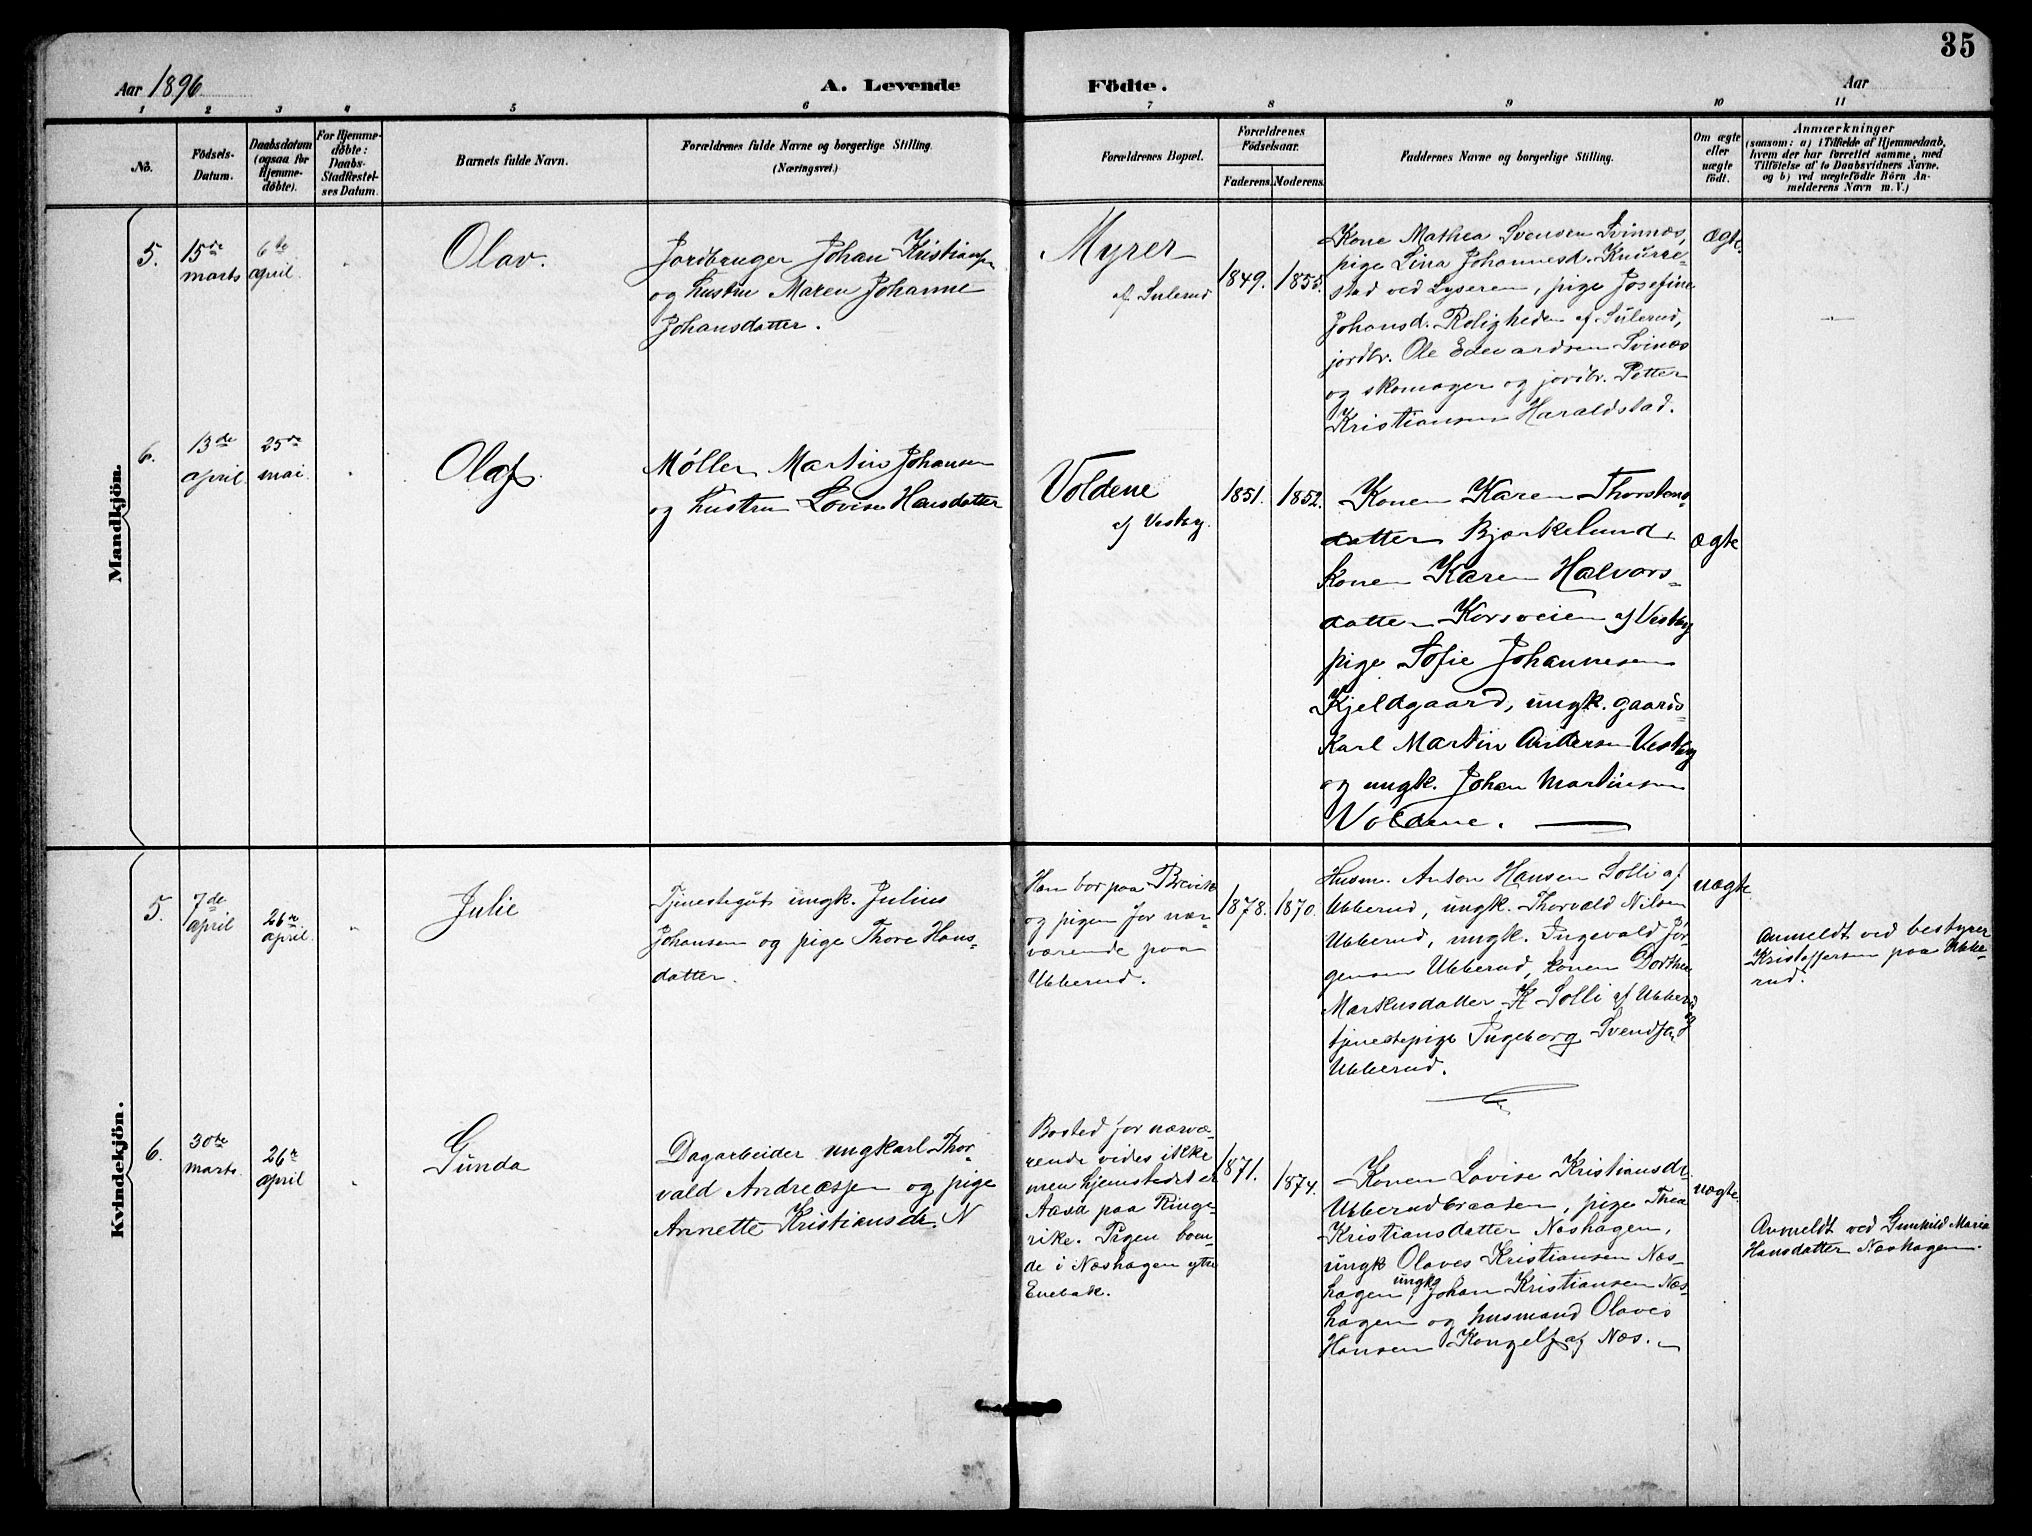 35
Aar 1896
A. Levende
Födte.
Aar
1 2 3 4 5 6 7 8 9 10 11
No.
Födsels-
Datum.
Daabsdatum
(ogsaa for
Hjemme-
døbte).
For Hjemme-
døbte:
Daabs-
Stadfæstel-
ses Datum.
Barnets fulde Navn.
Forældrenes fulde Navne og borgerlige Stilling.
(Næringsvei.)
Forældrenes Bopæl.
Forældrenes
Födselsaar.
Faderens.
Moderens.
Faddernes Navne og borgerlige Stilling.
Om ægte
eller
uægte
födt.
Anmærkninger
(saasom: a) i Tilfælde af Hjemmedaab,
hvem der har forrettet samme, med
Tilföielse af to Daabsvidners Navne,
og b) ved uægtefödte Börn An-
melderens Navn m. V.)
Mandkjön.
5.
15de
marts
6te
april.
Olav.
Jordbruger Johan Kristiansen
og hustru Maren Johanne
Johansdatter.
Myrer
af Sulerud
1849.
1855.
Kone Mathea Svensen Svinnæs,
pige Lina Johannesd. Knurre-
stad ved Lyseren, pige Josefine
Johansd. Roligheden af Sulerud,
jordbr. Ole Edevardsen Svinæs
og skomager og jordbr. Petter
Kristiansen Haraldstad.
ægte
6.
13de
april.
25de
mai.
Olaf.
Møller Martin Johansen
og hustru Lovise Hansdatter
Voldene
af Vestby.
1851.
1852.
Konen Karen Thorstens-
datter Bjørkelund,
konen Karen Halvors-
datter Korsveien af Vestby
pige Sofie Johannesen
Kjeldgaard, ungk. gaards-
karl Martin Andersen Vestby
og ungk. Johan Martinsen
Voldene.
ægte
Kvindekjön.
5.
7de
april
26de
april.
Julie
Tjenestegut ungk. Julius
Johansen og pige Thore Hans-
datter.
Han bor paa
og pigen for nær-
værende paa
Ubberud.
1878.
1870.
Husm. Anton Hansen Solli af
Ubberud, ungk. Thorvald Nilsen
Ubberud, ungk. Ingevald Jør-
gensen Ubberud, konen Dorthea
Markusdatter Solli af Ubberud
og
tjenestepige Ingeborg
Ubberud.
uægte
Anmeldt ved bestyrer
Kristoffersen paa Ubbe-
rud.
6.
30te
marts.
26de
april
Gunda
Dagarbeider ungkarl Thor-
vald Andreassen og pige
Annette Kristiansdr. N
Bosted for nærvæ-
rende vides ikke
men hjemstedet er
Aasa paa Ringe-
rike. Pigen boen-
de i Næshagen ytre
Enebak.
1871.
1874.
Konen Lovise Kristiansdr.
Ubberudbraaten, pige Thea
Kristiansdatter Næshagen,
ungk Olaves Kristiansen Næs-
hagen, ungk. Johan Kristiansen Næs-
hagen og husmand Olaves
Hansen af Næs.
uægte
Anmeldt ved Gunhild Marie
Hansdatter Næshagen.